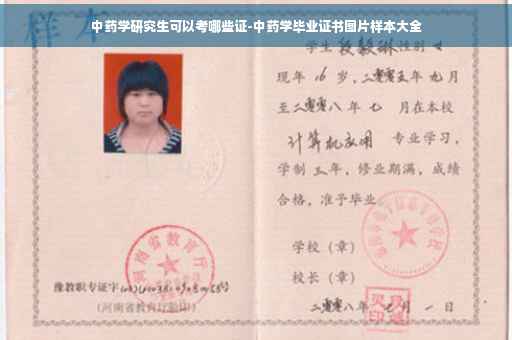 中药学研究生可以考哪些证-中药学毕业证书图片样本大全
样本
学生段毅琳性别女
现年16岁,二零零五年九月
至二零零八年七月在本校
计算机应用 专业学习,
学制三年,修业期满,成绩
合格,准予毕业。
学校(章)
校长(章)
二零零八年七月一日
河南省教育厅
豫教职专证字
(河南省教育厅验印)